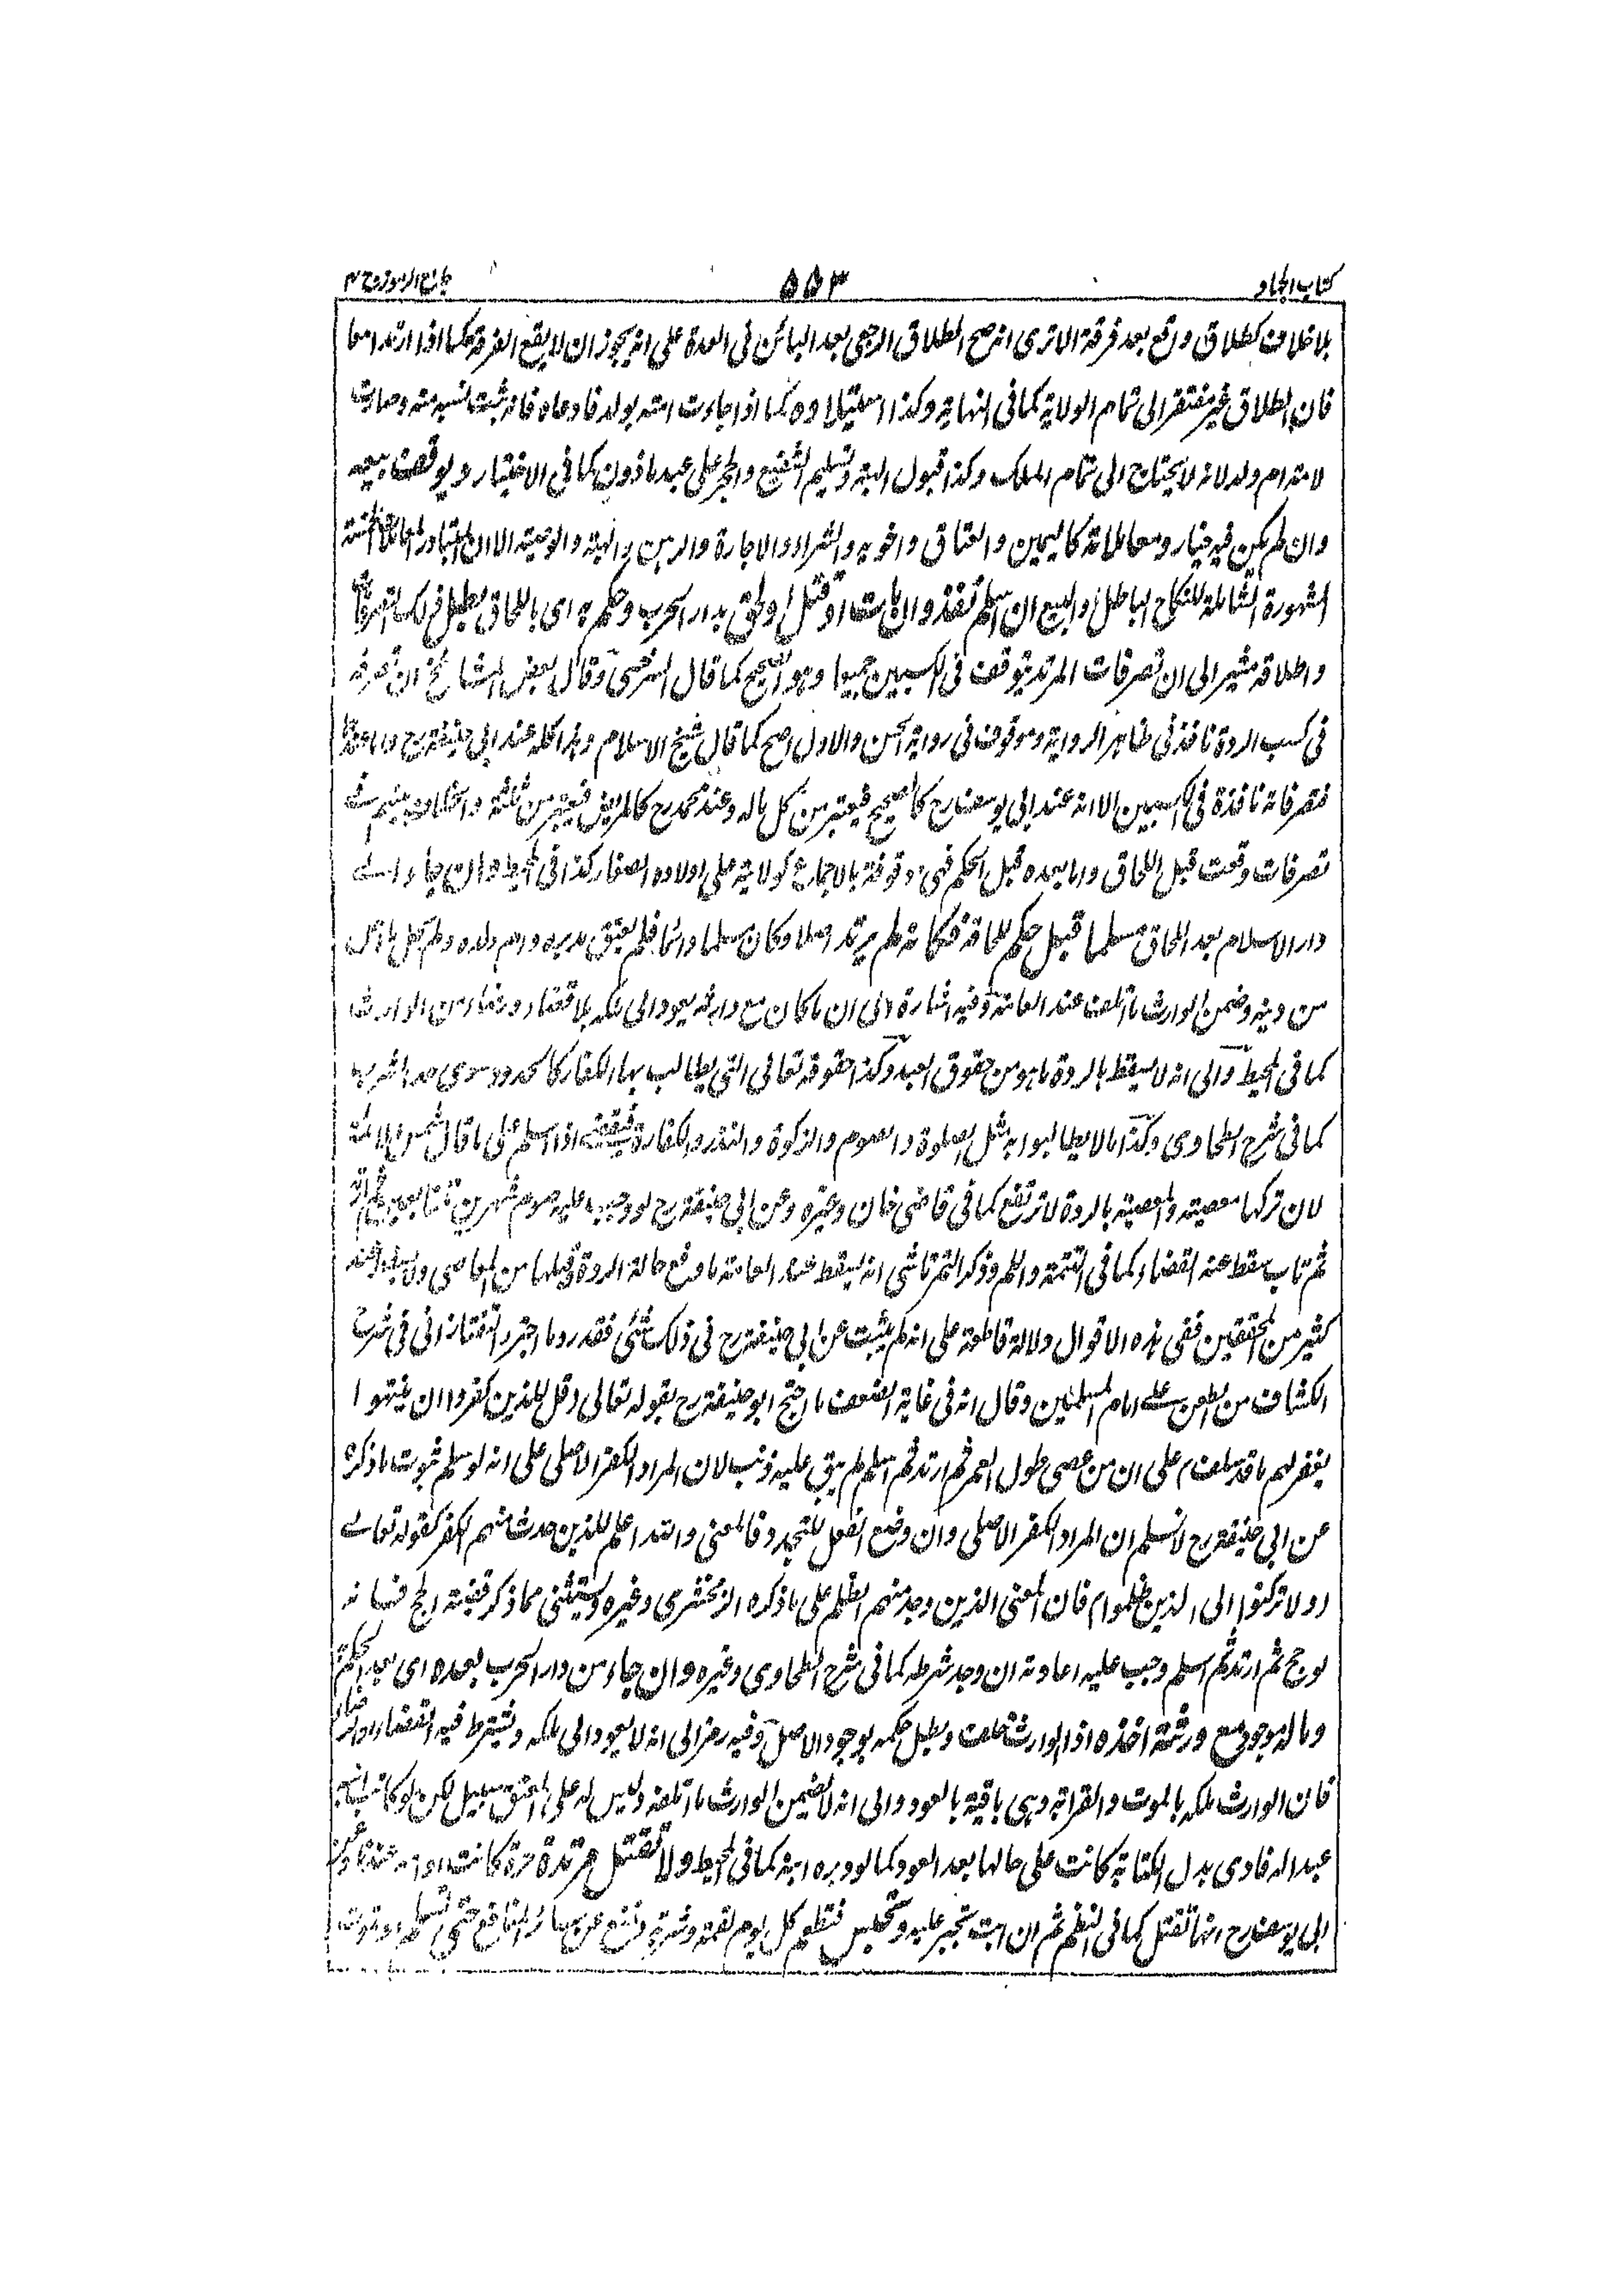 كتاب الجهاد ٥٥٣ جامع الرموز ج ٢
بلا خلاف كطلاق واقع بعد فرقة الا ترى انه صح الطلاق الرجعى بعد البائن فى العدة على انه يجوز ان لا يقع الفرقة كما اذا ارتدا معا
فان الطلاق غير مفتقر الى تمام الولاية كما فى النهاية وكذا استيلاده كما اذا جاءت امته بولد فادعاه فانه ثبت نسبه منه وصارت
لامته ام ولد لانه لا يحتاج الى تمام الملك وكذا قبول الهبة وتسليم الشفيع والحجر على عبد ماذون كما فى الاختيار ويوقف بيعه
وان لم يكن فيه خيار ومعاملاته كاليمين والعتاق واخويه والشراء والاجارة والرهن والهبة والوصية الا ان المتبادر
المشهورة الشاملة للنكاح الباطل والبيع ان اسلم نفذ وان مات او قتل او لحق بدار الحرب وحكم به اى باللحاق بطل
واطلاقه مشير الى ان تصرفات المرتد يتوقف فى الكسبين جميعا وهو الصحيح كما قال السرخسى وقال بعض المشائخ ان تصرفه
فى كسب الردة نافذ فى ظاهر الرواية وموقوف فى رواية الحسن والاول اصح كما قال شيخ الاسلام وهذا كله عند ابى حنيفة رح واما عندهما
فتصرفاته نافذة فى الكسبين الا انه عند ابى يوسف رح كالصحيح فيعتبر من كل ماله وعند محمد رح كالمريض فيعتبر من ثلثه والخلاف بينهم فى
تصرفات وقعت قبل اللحاق واما بعده قبل الحكم فهى موقوفة بالاجماع كولايته على اولاده الصغار كذا فى المحيط وان جاء الے
دار الاسلام بعد اللحاق مسلما قبل حكم للحاقه فكانه لم يرتد اصلا وكان مسلما دائما فلم يعتق مدبره وام ولده ولم يحل ما اجل
من دينه وضمن الوارث ما اتلف عند العامة وفيه اشارة الى ان ما كان مع وارثه يعود الى ملكه بلا قضاء ورضاء من الوارث
كما فى المحيط والى انه لا يسقط بالردة ما هو من حقوق العبد وكذا حقوقه تعالى التى يطالب بها الكفار كالحدود سوى حد الشرب
كما فى شرح الطحاوى وكذا ما لا يطالبوا به مثل الصلوة والصوم والزكوة والنذر والكفارة فيقضيه اذا اسلم على ما قال شمس الائمة
لان تركها معصية والمعصية بالردة لا ترتفع كما فى قاضى خان وغيره وعن ابى حنيفة رح لو وجب عليه صوم شهرين متتابعين
ثم تاب سقط عنه القضاء كما فى التتمة واللم وذكر التمرتاشى انه يسقط عند العامة ما وقع حالة الردة وقبلها من المعاصى ولا يسقط عند
كثير من المحققين ففى هذه الاقوال دلالة قاطعة على انه لم يثبت عن ابى حنيفة رح فى ذلك شئى فقد رد ما اجترء التفتازانى فى شرح
الكشاف من الطعن على امام المسلمين وقال انه فى غاية الضعف ما احتج ابو حنيفة رح بقوله تعالى (قل للذين كفروا ان ينتهوا
يغفر لهم ما قد سلف) على ان من عصى طول العمر ثم ارتد ثم اسلم لم يبق عليه ذنب لان المراد الكفر الاصلى على انه لو سلم ثبوت ما ذكره
عن ابى حنيفة رح لا نسلم ان المراد الكفر الاصلى وان وضع الفعل للتجدد فالمعنى والله اعلم للذين حدث منهم الكفر كقوله تعالے
(ولا تركنوا الى الذين ظلموا) فان المعنى الذين وجد منهم الظلم على ما ذكره الزمخشرى وغيره ويستثنى مما ذكر قضية الحج فانه
لو حج ثم ارتد ثم اسلم وجب عليه اعادته ان وجد شرطه كما فى شرح الطحاوى وغيره وان جاء من دار الحرب بعده اى بعد الحكم
وماله موجود مع ورثته اخذه اذ الوارث خلف وبطل حكمه بوجود الاصل وفيه رمز الى انه لا يعود الى ملكه ويشترط فيه القضاء او الرضاء
فان الوارث ملكه بالموت والقرابة وهى باقية بالعود والى انه لا يضمن الوارث ما اتلفه وليس له على المعتق سبيل لكن لو كاتب ابنه
عبدا له فادى بدل الكتابة كانت على حالها بعد العود كما لو دبره ابنه كما فى المحيط ولا تقتل مرتدة حرة كانت او امة عندنا وعن
ابى يوسف رح انها تقتل كما فى النظم ثم ان ابت تجبر عليه وتحبس فتطعم كل يوم لقمة وشربة وتمنع عن سائر المنافع حتى تسلم او تموت